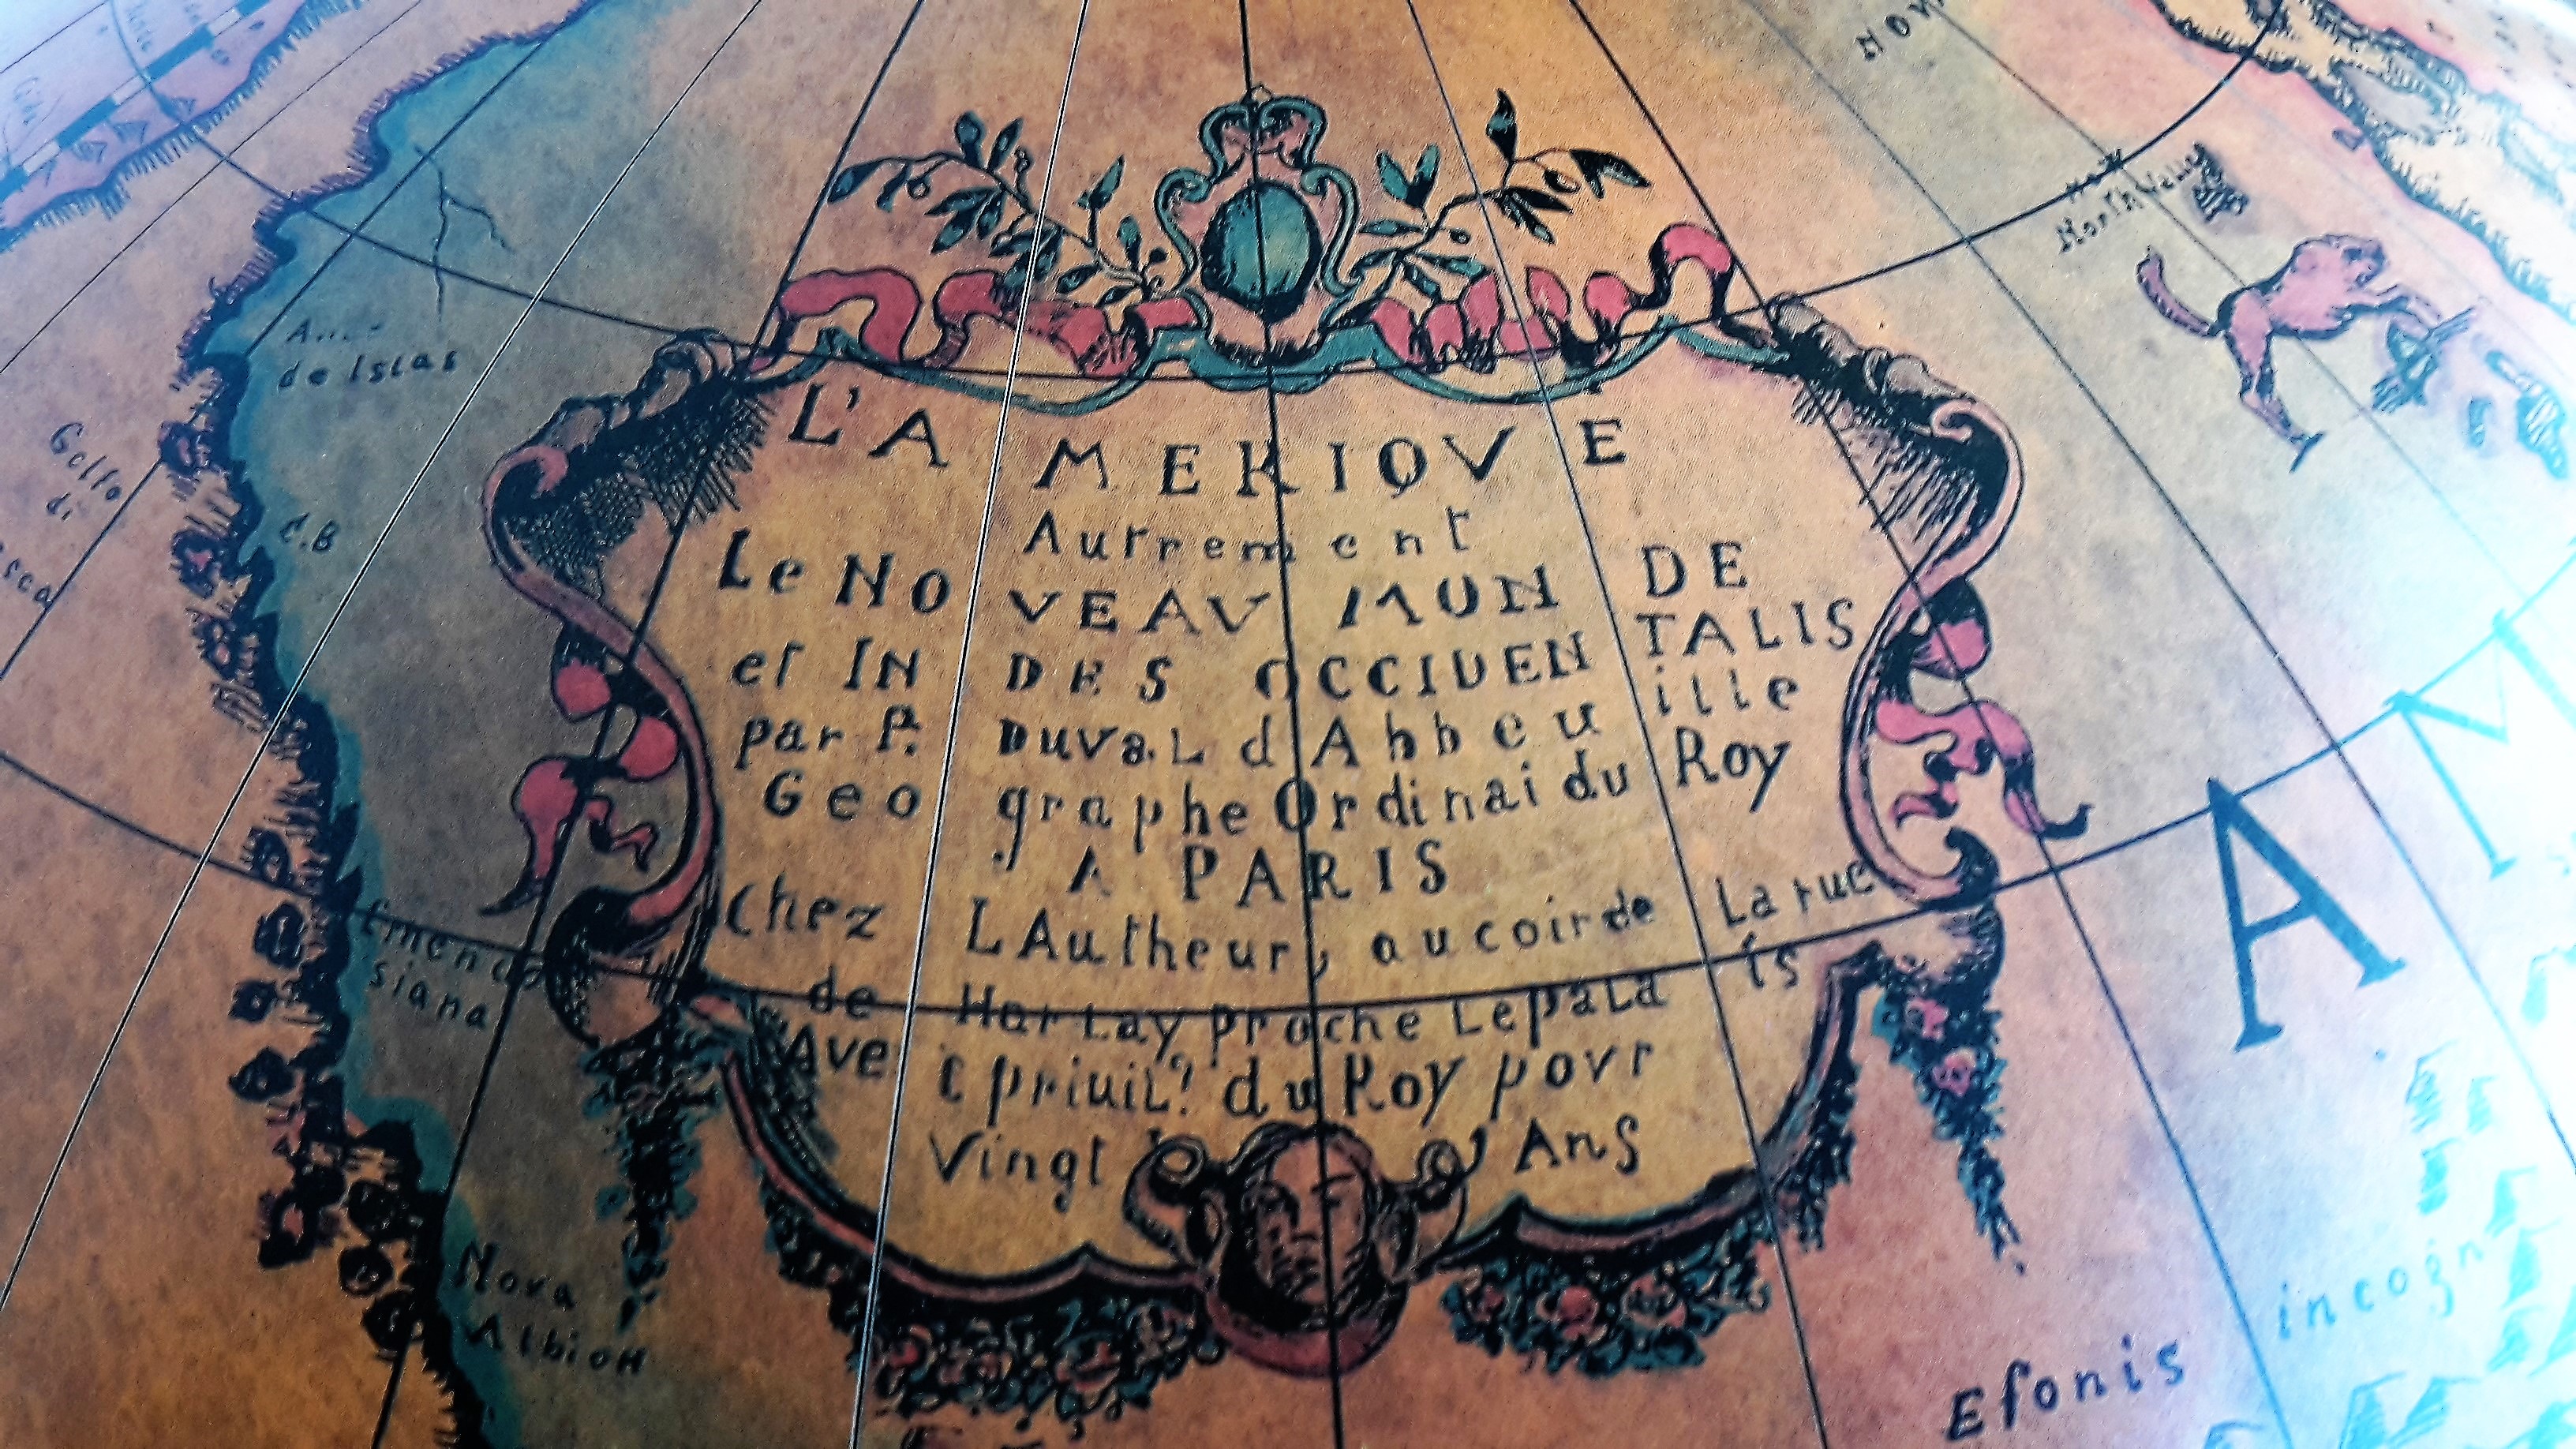 de Islas
Golfo
di
C.B
L'AMERIQVE
Autrement
Le NOVEAV MONDE
et INDES OCCIDENTALIS
par P. Duval d'Abbeuille
Geographe Ordinai du Roy
A PARIS
Chez LAutheur, au coirde La rue
de Harlay proche Lepalais
Avec priuil? du Roy povr
Vingt Ans
siana
Nova
Albion
A M
incogn
Esonis